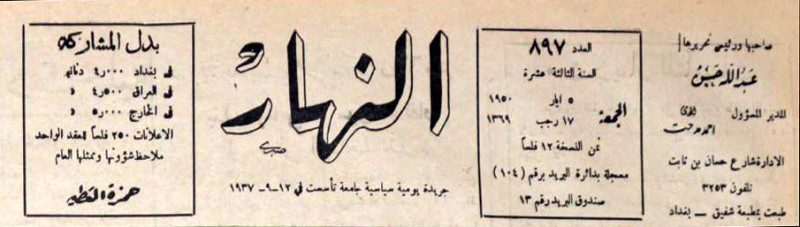 صاحبها ورئيس تحريرها
عبدالله حسن
المدير المسؤول المحامي احمد مدحت
الادارة شارع حسان بن ثابت
تلفون ٣٢٥٣
طبعت بمطبعة شفيق — بغداد
العدد ٨٩٧
السنة الثالثة عشرة
الجمعة
٥ ايار ١٩٥٠
١٧ رجب ١٣٦٩
ثمن النسخة ١٢ فلساً
مسجلة بدائرة البريد برقم (١٠٤)
صندوق البريد رقم ١٣
النهار
صبري
جريدة يومية سياسية جامعة تأسست في ١٢-٩-١٩٣٧
بدل المشاركة
في بغداد ٤٫٠٠٠ دنانير
في العراق ٤٫٥٠٠ »
في الخارج ٥٫٠٠٠ »
الاعلانات ٢٥٠ فلساً للعقد الواحد
ملاحظ شؤونها وممثلها العام
حمزة